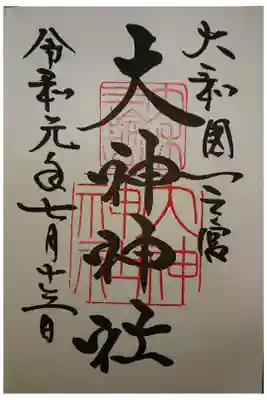 大和國一之宮
大神神社
令和元年七月十三日
大神
神社